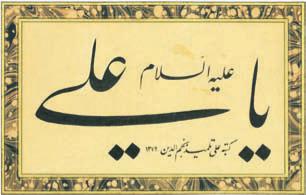 یا علی
علیه السلام
کتبه علی تلمیذ نجم الدین ۱۳۲۶